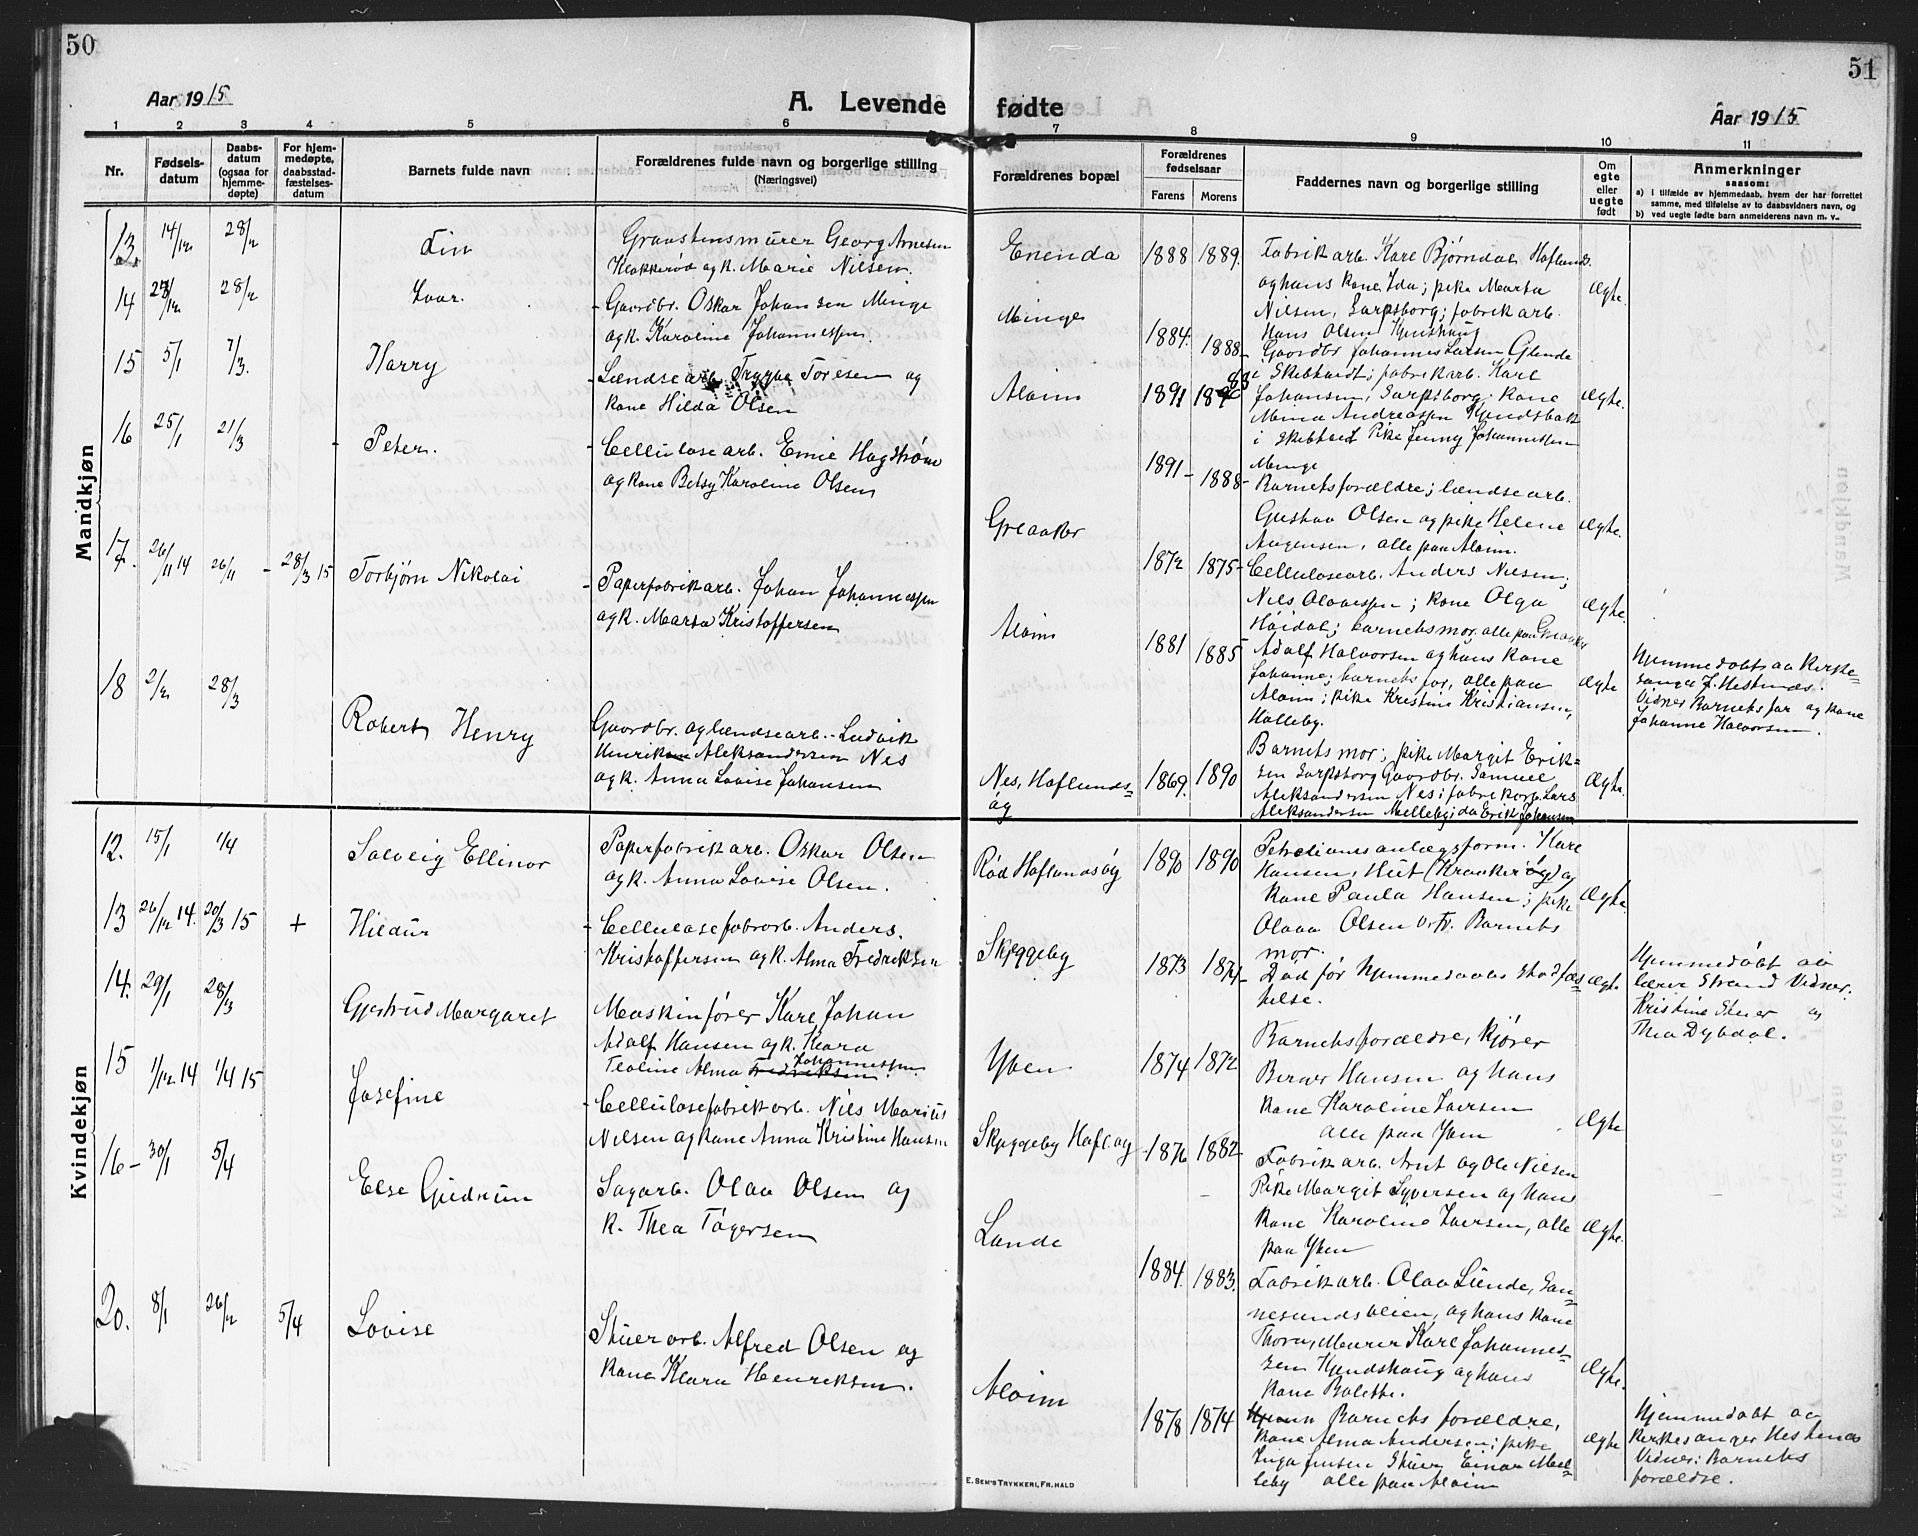 50
Aar 1915
A. Levende
1 2 3 4 5 6
Nr.
Fødsels-
datum
Daabs-
datum
(ogsaa for
hjemme-
døpte)
For hjem-
medøpte,
daabsstad-
fæstelses-
datum
Barnets fulde navn
Forældrenes fulde navn og borgerlige stilling
(Næringsvei)
Mandkjøn
13. 14/12 28/2
Georg Arnesen
Klokkerød og k. Marie Nilsen.
14 28/2
Ivar.
Gaardbr. Oskar Johansen Minge
og k. Karoline Johannessen
15 5/1 7/3.
Harry
Lændsearb. Trygve Toresen og
kone Hilda Olsen
16 25/1 21/3
Peter.
Cellulosearb. Emil Hagstrøm
og kone Betsy Karoline Olsen
17. 26/11 14 26/11 - 28/3 15
Torbjørn Nikolai
Papirfabrikarb. Johan Johannessen
og k. Marta Kristoffersen
18 2/2 28/3
Robert Henry
Gaardbr. og lændsearb. Ludvik
Henrik Aleksandersen Nes
og k. Anna Lovise Johansen
Kvindekjøn
12. 15/1 1/4
Solveig Ellinor
Papirfabrikarb. Oskar Olsen
og k. Anna Lovise Olsen.
13 26/12 14. 20/3 15 +
Hildur
Cellulosefabrarb. Anders
Kristoffersen og k. Alma Fredriksen
14. 29/1 28/3
Gjertrud Margaret
Maskinfører Karl Johan
Adolf Hansen og k. Klara
Teoline Alma Fredriksen Johannessen.
15 1/12 14 1/4 15
Josefine
Cellulosefabrikarb. Nils Marius
Nilsen og kone Anna Kristine Hansen
16 - 30/1 5/4
Else Gudrun
Sagarb. Olav Olsen og
k. Thea Tøgersen
20. 8/1 26/2 5/4
Lovise
Skuerarb. Alfred Olsen og
kone Klara Henriksen.
51
fødte
Aar 1915
7 8 9 10 11
Forældrenes bopæl
Forældrenes
fødselsaar
Farens Morens
Faddernes navn og borgerlige stilling
Om
egte
eller
uegte
født
Anmerkninger
saasom:
a) i tilfælde av hjemmedaab, hvem der har forrettet
samme, med tilføielse av to daabsvidners navn, og
b) ved uegte født barn anmelderens navn m. v.
Enenda 1888 1889.
Fabrikarb. Karl Bjørndal Hafslund.
og hans kone Ida; pike Marta
Nilsen, Sarpsborg; fabrikarb.
Hans Olsen
Ægte.
Minge 1884. 1888
Gaardbr Johannes Larsen Glende
i Skibtvedt; fabrikarb. Karl
Johansen, Sarpsborg; kone
Mina Andreassen
i Skibtvedt Pike Jenny Johannessen
Minge
Ægte.
Alvim 1891
Barnets forældre; lændsearb.
Gustav Olsen og pike Helene
alle paa Alvim.
Ægte.
Greaaker 1891 - 1888
Cellulosearb. Anders Nilsen;
Nils Olavessen; kone Olga
Høidal; barnets mor, alle paa Greaaker
Ægte.
Alvim 1872 1875
1881 1885
Adolf Halvorsen og hans kone
Johanne; barnets far, alle paa
Alvim; pike Kristine Kristiansen,
Halleby.
Ægte
Hjemmedøbt av Kirke-
sanger J. Hestenæs.
Vidner Barnets far og kone
Johanne Halvorsen.
Nes, Haflunds-
øg
1869. 1890
Barnets mor; pike Margit Erik-
sen Sarpsborg Gaardbr. Samuel
Aleksandersen Nes; fabrikarb. Lars
Aleksandersen Melleby; do Erik Johansen
Ægte.
Rød Haflundsøg 1890 1890
anlægsform. Karl
Hansen, Hut (Kraakerøy) og
kone Paula Hansen; pike
Olava Olsen Barnets
mor.
Ægte.
Skjeggeby 1873 1874
Død før hjemmedaabs stadfæs-
telse.
Ægte
Hjemmedøbt av
lærer Strand Vidner:
Kristine Steier og
Thea Dybdal.
Yven 1874 1872
Barnets forældre, kjører
Berner Hansen og hans
kone Karoline Iversen
alle paa Yven
Ægte
Skjeggeby Hafl.øg 1876 1882
Fabrikarb. Arnt og Ole Nilsen
Pike Margit Syversen og hans
kone Karoline Iversen, alle
paa Yven
Ægte.
Lande 1884. 1883.
Fabrikarb. Olav Lunde, San-
nesundsveien, og hans kone
Thora, Murer Karl Johannes-
sen og hans
kone Bolette.
Ægte.
Alvim 1878 1874
Barnets forældre,
kone Alma Andersen; pike
Inga Jensen Skuer Einar Mel-
leby alle paa Alvim
Ægte
Hjemmedøbt av
Kirkesanger Hestenæs
Vidner: Barnets
forældre.
E. SEM'S TRYKKERI, FR. HALD